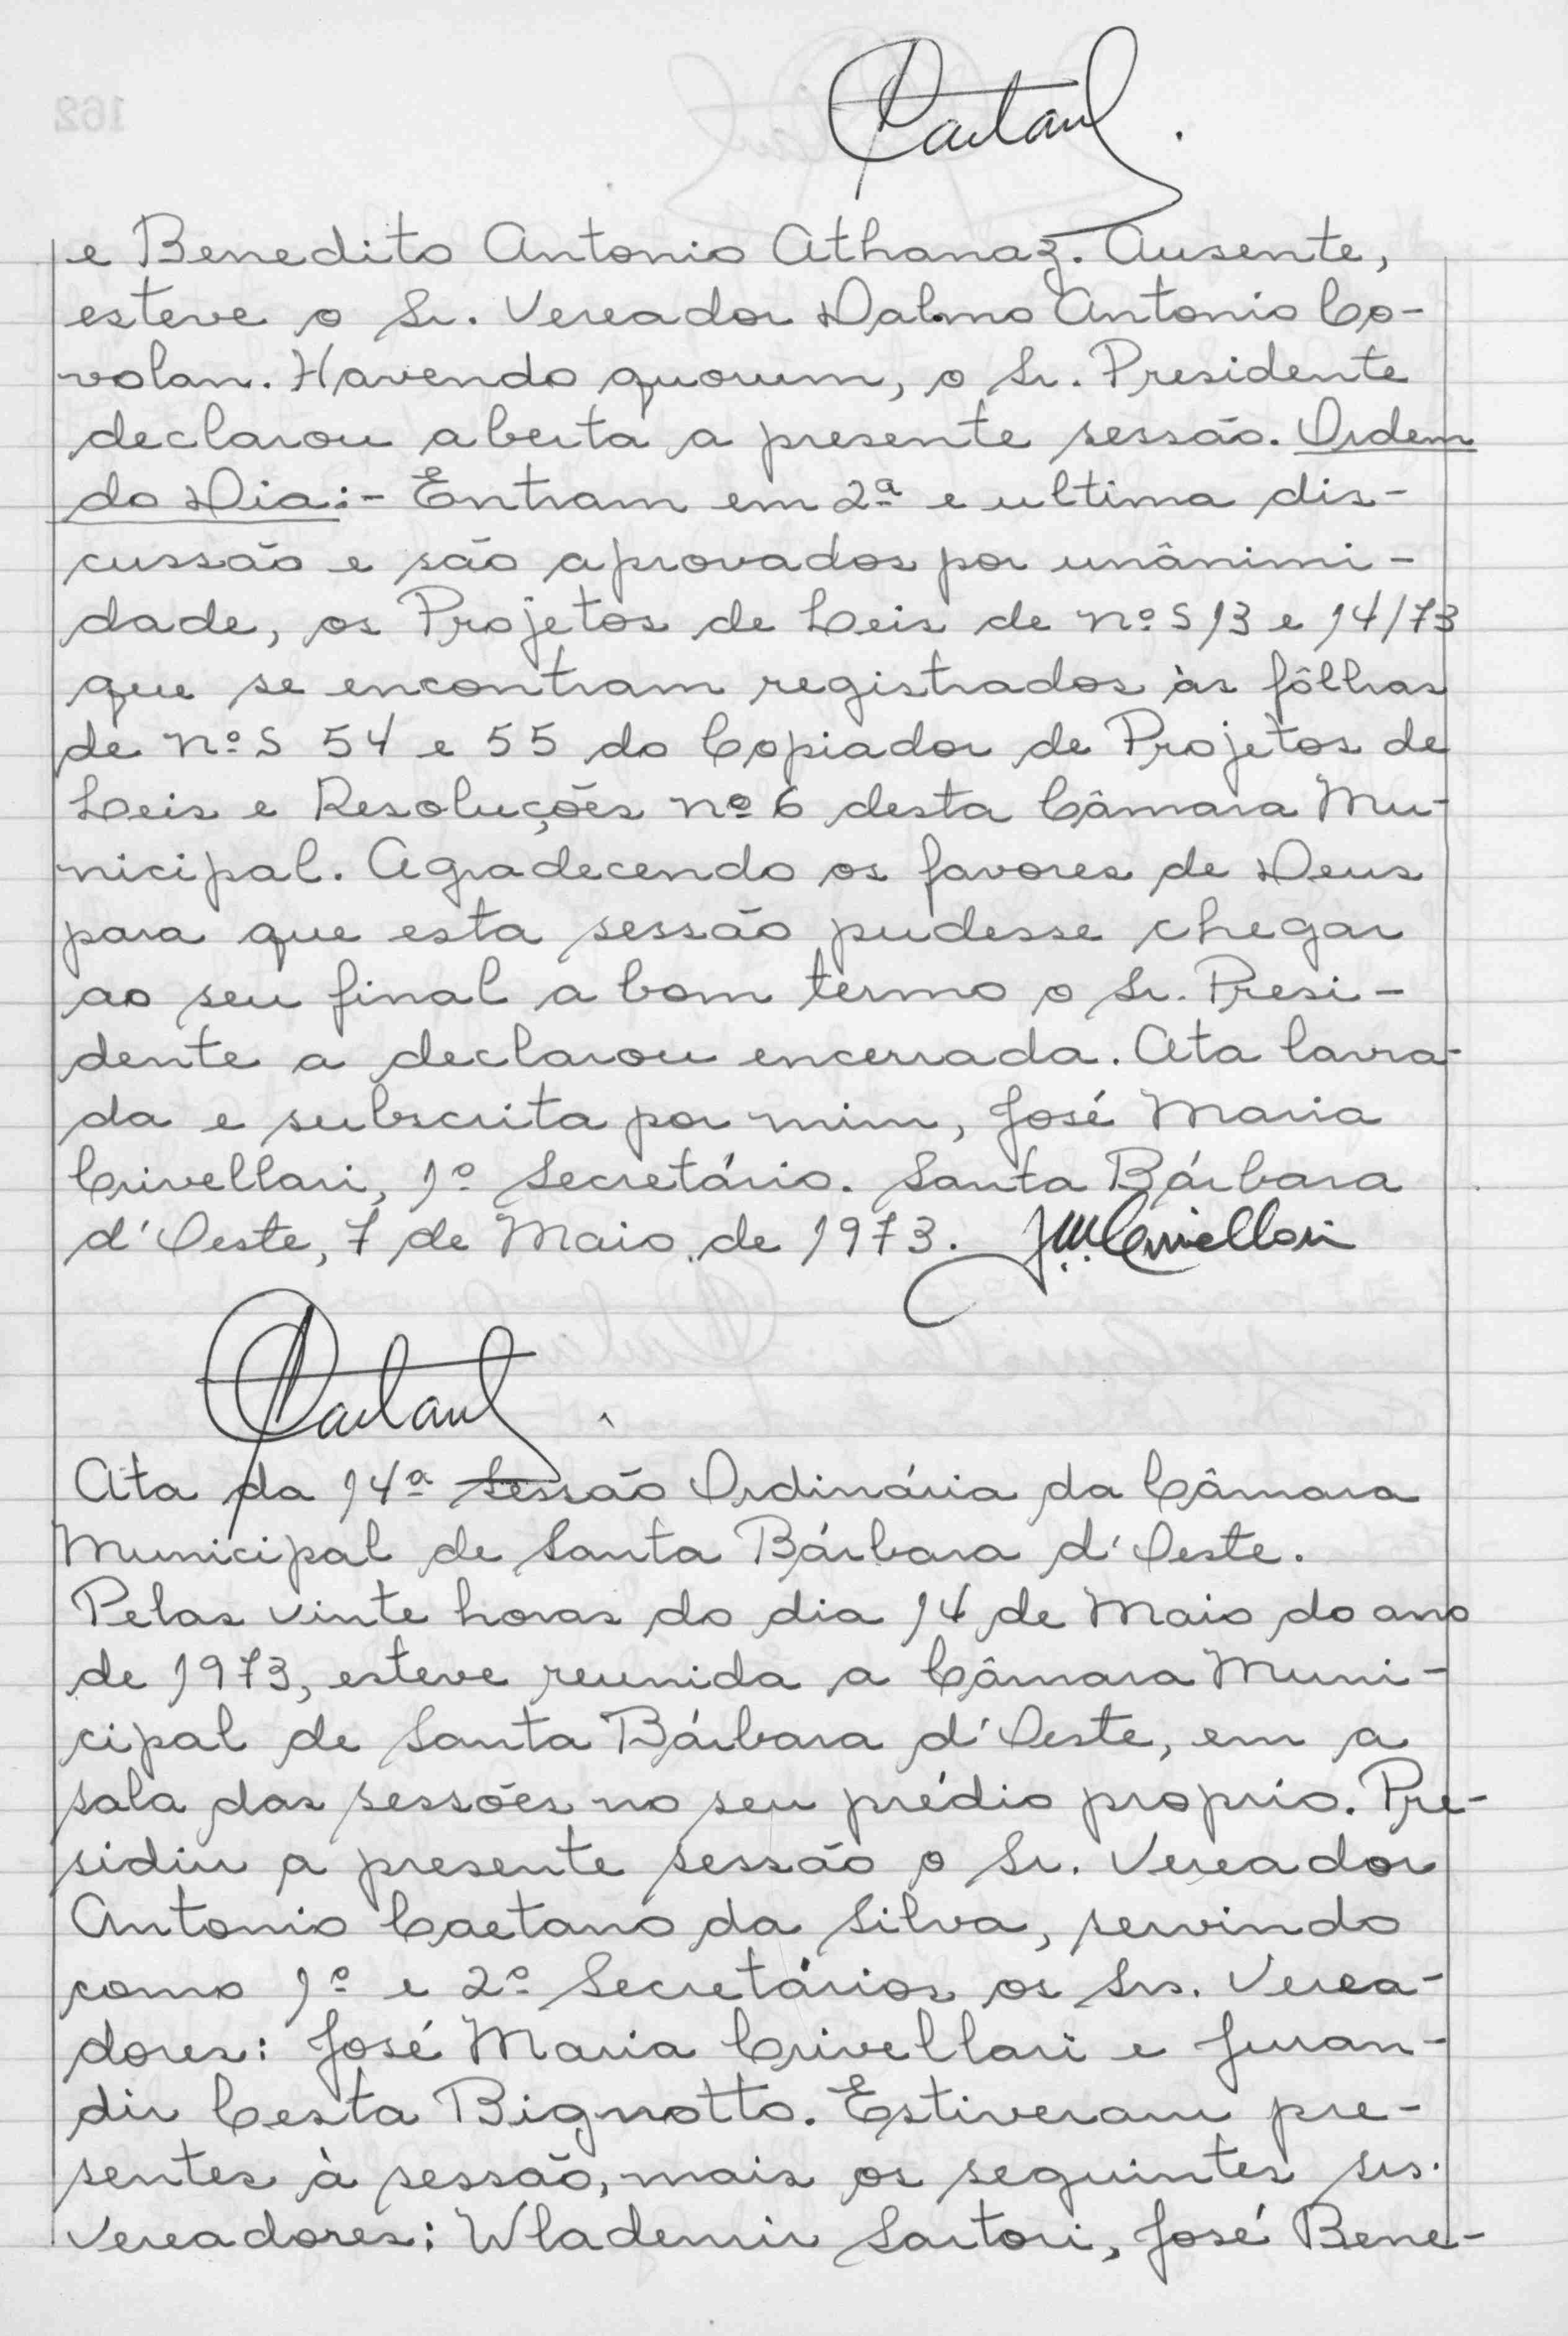 e Benedito Antonio Athanaz. Ausente,
esteve o Sr. Vereador Dalmo Antonio Co-
volan. Havendo quorum, o Sr. Presidente
declarou aberta a presente sessão. Ordem
do Dia:- Entram em 2ª e ultima dis-
cussão e são aprovados por unânimi-
dade, os Projetos de Leis de nºs 13 e 14/73
que se encontram registrados às fôlhas
de nºs 54 e 55 do Copiador de Projetos de
Leis e Resoluções nº 6 desta Câmara Mu-
nicipal. Agradecendo os favores de Deus
para que esta sessão pudesse chegar
ao seu final a bom termo o Sr. Presi-
dente a declarou encerrada. Ata lavra-
da e subscrita por mim, José Maria
Crivellari, 1º Secretário. Santa Bárbara
d'Oeste, 7 de Maio de 1973. JMCrivellari
Ata da 14ª Sessão Ordinária da Câmara
Municipal de Santa Bárbara d'Oeste.
Pelas vinte horas do dia 14 de Maio do ano
de 1973, esteve reunida a Câmara Muni-
cipal de Santa Bárbara d'Oeste, em a
sala das sessões no seu prédio proprio. Pre-
sidiu a presente sessão o Sr. Vereador
Antonio Caetano da Silva, servindo
como 1º e 2º Secretários os Srs. Verea-
dores: José Maria Crivellari e Juran-
dir Cesta Bignotto. Estiveram pre-
sentes à sessão, mais os seguintes srs.
Vereadores: Wlademir Sartori, José Bene-